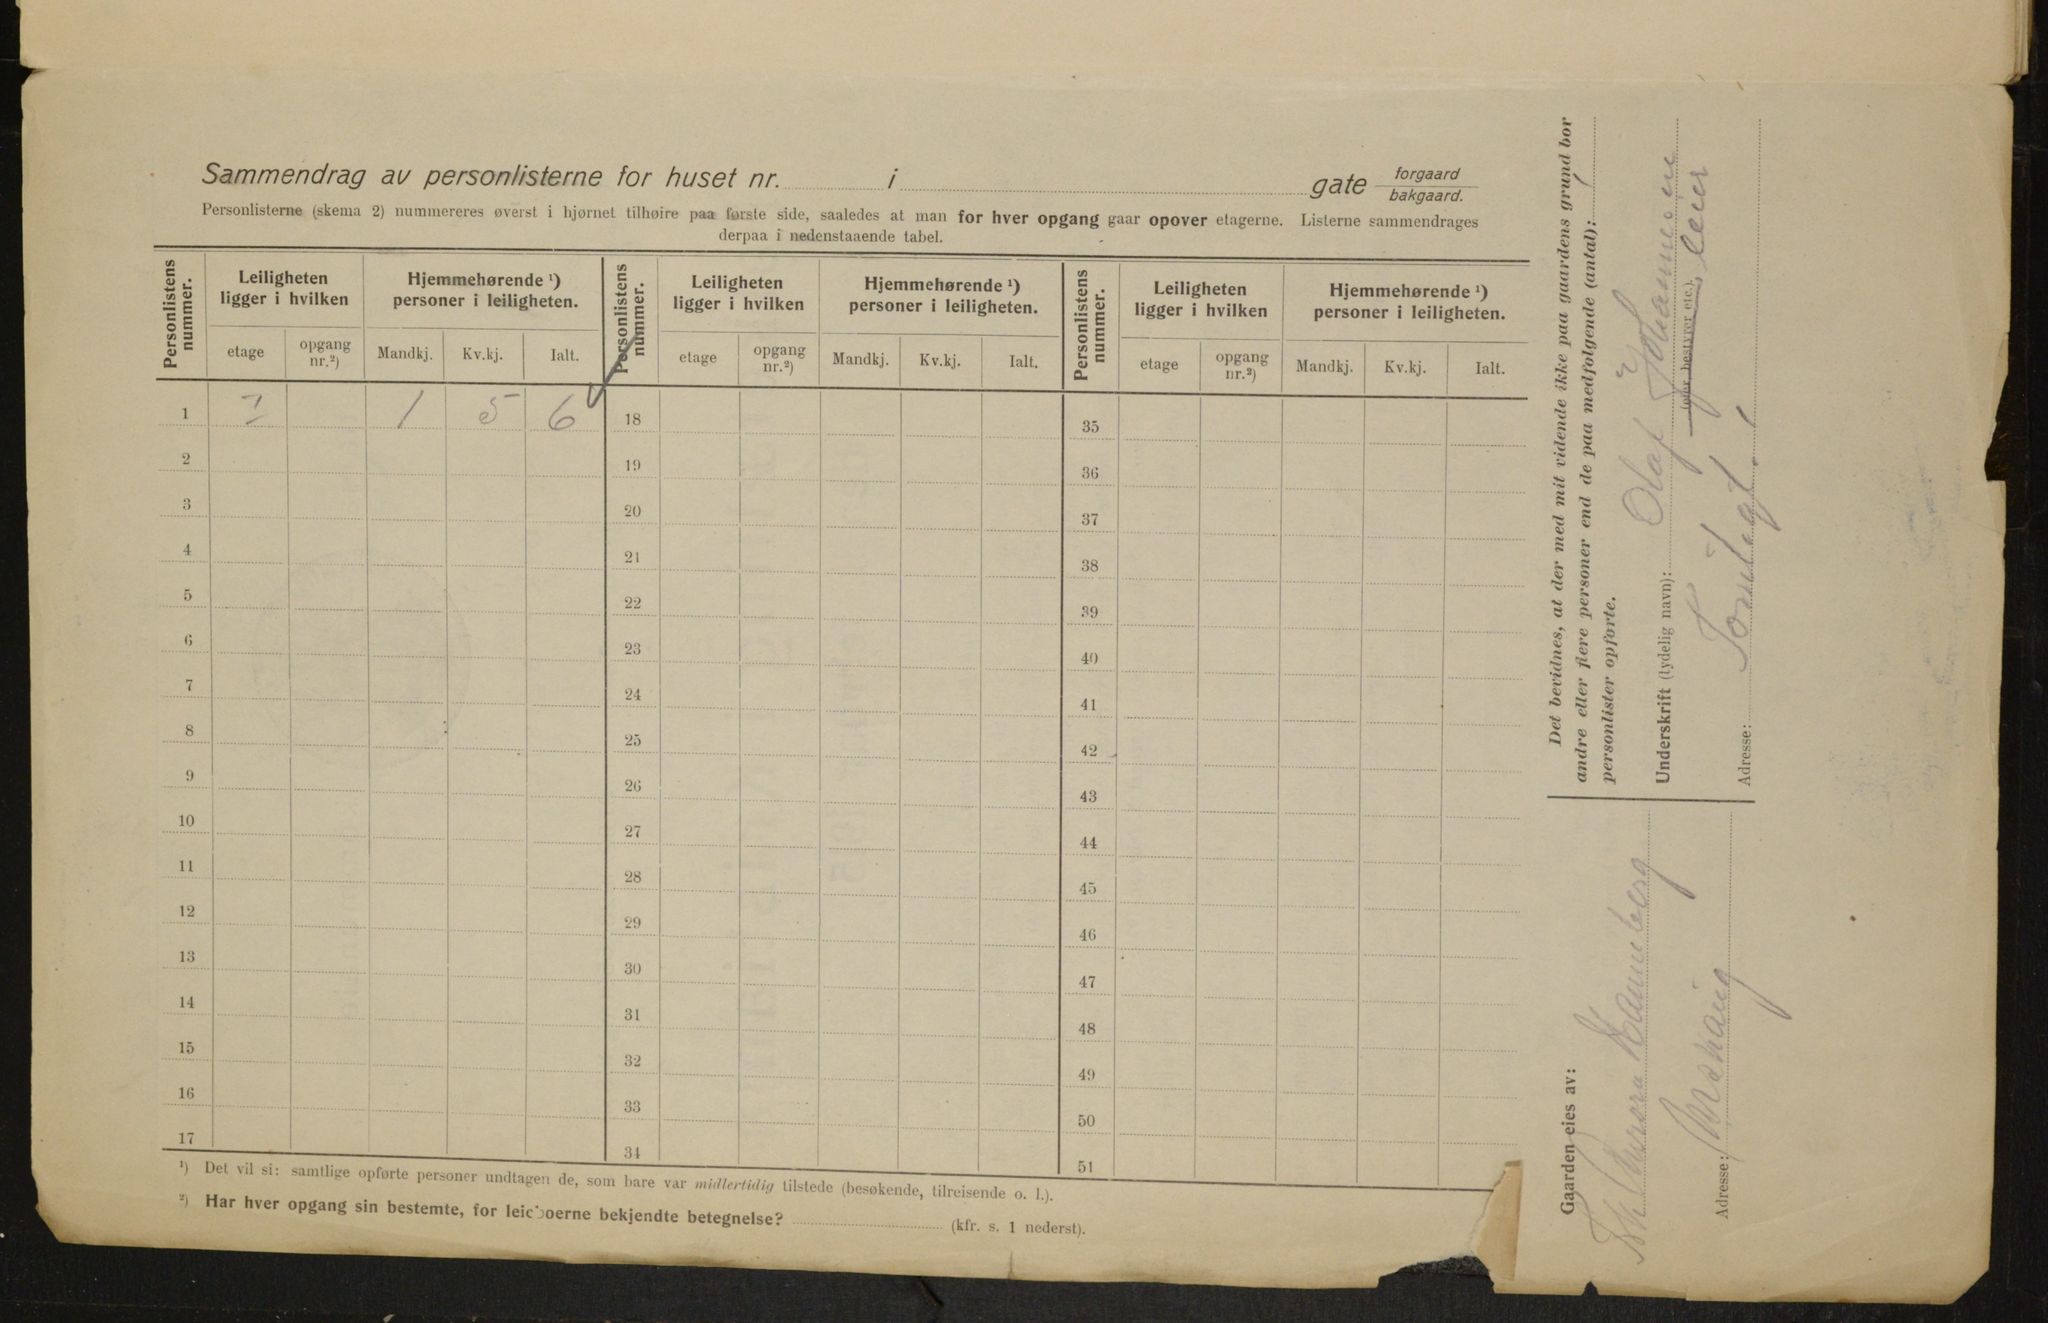 Sammendrag av personlisterne for huset nr. i gate forgaard bakgaard.
Personlisterne (skema 2) nummereres øverst i hjørnet tilhøire paa første side, saaledes at man for hver opgang gaar opover etagerne. Listerne sammendrages
derpaa i nedenstaaende tabel.
Personlistens nummer. Leiligheten ligger i hvilken Hjemmehørende ¹) personer i leiligheten. Personlistens nummer. Leiligheten ligger i hvilken Hjemmehørende ¹) personer i leiligheten. Personlistens nummer. Leiligheten ligger i hvilken Hjemmehørende ¹) personer i leiligheten.
etage opgang nr.²) Mandkj. Kv.kj. Ialt. etage opgang nr.²) Mandkj. Kv.kj. Ialt. etage opgang nr.²) Mandkj. Kv.kj. Ialt.
1 I 1 5 6 18 35
2 19 36
3 20 37
4 21 38
5 22 39
6 23 40
7 24 41
8 25 42
9 26 43
10 27 44
11 28 45
12 29 46
13 30 47
14 31 48
15 32 49
16 33 50
17 34 51
¹) Det vil si: samtlige opførte personer undtagen de, som bare var midlertidig tilstede (besøkende, tilreisende o. l.).
²) Har hver opgang sin bestemte, for leieboerne bekjendte betegnelse? (kfr. s. 1 nederst).
Det bevidnes, at der med mit vidende ikke paa gaardens grund bor
andre eller flere personer end de paa medfølgende (antal): 1
personlister opførte.
Underskrift (tydelig navn): Olaf Johannesen
(eier, bestyrer etc.) leier
Adresse: Tomtegt. 1
Gaarden eies av:
Kanneberg
Adresse: